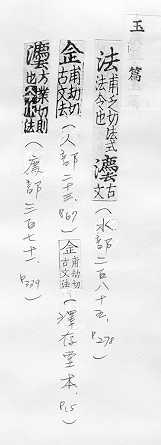 玉篇
法甫乏切法式法令也灋古文(水部二百八十五、P.278)
佱甫劫切古文法(人部二十三、P67)佱甫劫切古文法(澤存堂本、P.15)
灋方業切則也今作法(廌部三百七十一、P339)